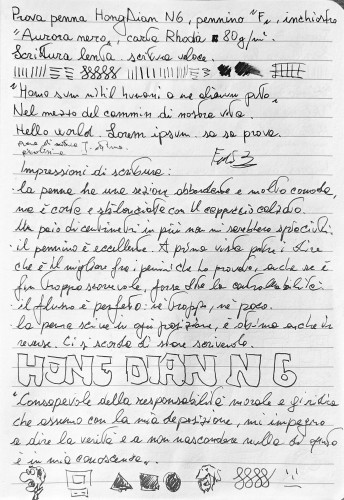 Prova penna HongDian N6, pennino "F", inchiostro
"Aurora nero", carta Rhodia 80g/m².
Scrittura lenta. scrittura veloce.
"Homo sum nihil humani a me alienum puto"
Nel mezzo del cammin di nostra vita.
Hello world. Lorem ipsum. sa sa prova.
Impressioni di scrittura:
· la penna ha una sezione abbondante e molto comoda,
ma è corta e sbilanciata con il cappuccio calzato.
Un paio di centimetri in più non mi sarebbero spiaciuti.
· il pennino è eccellente. A prima vista potrei dire
che è il migliore fra i pennini che ho provato, anche se è
fin troppo scorrevole, forse che la controllabilità
· il flusso è perfetto: nè troppo, nè poco.
· la penna scrive in ogni posizione, è ottima anche in
reverse. Ci si scorda di stare scrivendo.
HONG DIAN N6
"Consapevole della responsabilità morale e giuridica
che assumo con la mia deposizione, mi impegno
a dire la verità e a non nascondere nulla di quanto
è in mia conoscenza".